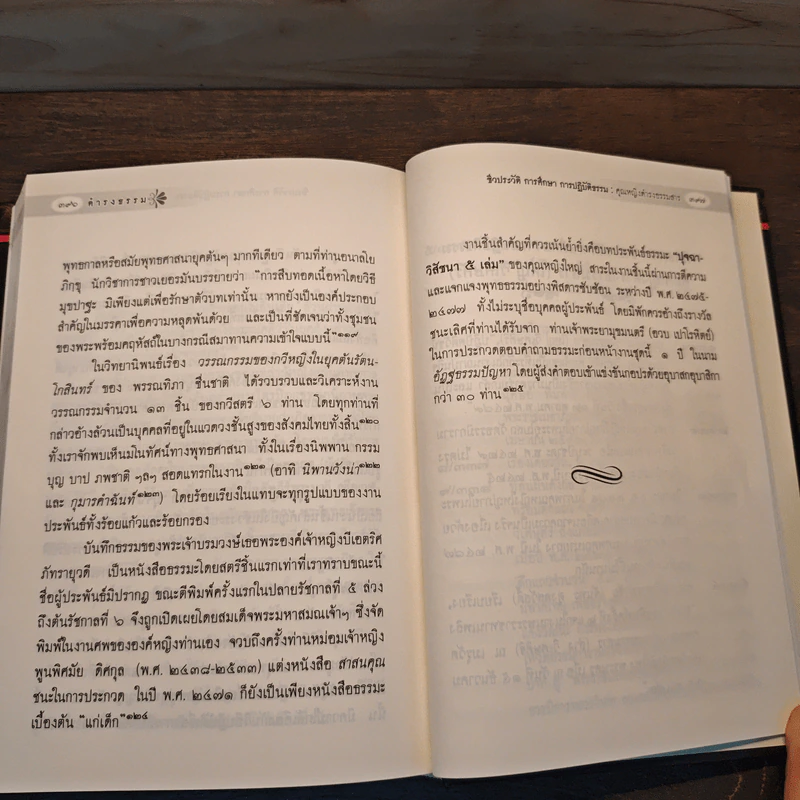 ๓๙๖ ดำรงธรรม
พุทธกาลหรือสมัยพุทธศาสนายุคต้นๆ มากทีเดียว ตามที่ท่านอนาลโย
ภิกขุ นักวิชาการชาวเยอรมันบรรยายว่า "การสืบทอดเนื้อหาโดยวิธี
มุขปาฐะ มิเพียงแต่เพื่อรักษาตัวบทเท่านั้น หากยังเป็นองค์ประกอบ
สำคัญในมรรคาเพื่อความหลุดพ้นด้วย และเป็นที่ชัดเจนว่าทั้งชุมชน
ของพระพร้อมคฤหัสถ์ในบางกรณีสมาทานความเข้าใจแบบนี้"๑๑๙
ในวิทยานิพนธ์เรื่อง วรรณกรรมของกวีหญิงในยุคต้นรัตน-
โกสินทร์ ของ พรรณทิภา ชื่นชาติ ได้รวบรวมและวิเคราะห์งาน
วรรณกรรมจำนวน ๑๓ ชิ้น ของกวีสตรี ๖ ท่าน โดยทุกท่านที่
กล่าวอ้างล้วนเป็นบุคคลที่อยู่ในแวดวงชั้นสูงของสังคมไทยทั้งสิ้น๑๒๐
ทั้งเราจักพบเห็นมโนทัศน์ทางพุทธศาสนา ทั้งในเรื่องนิพพาน กรรม
บุญ บาป ภพชาติ ฯลฯ สอดแทรกในงาน๑๒๑ (อาทิ นิพานวังน่า๑๒๒
และ กุมารคำฉันท์๑๒๓) โดยร้อยเรียงในแทบจะทุกรูปแบบของงาน
ประพันธ์ทั้งร้อยแก้วและร้อยกรอง
บันทึกธรรมของพระเจ้าบรมวงษ์เธอพระองค์เจ้าหญิงบีเอตริศ
ภัทรายุวดี เป็นหนังสือธรรมะโดยสตรีชิ้นแรกเท่าที่เราทราบขณะนี้
ชื่อผู้ประพันธ์มิปรากฏ ขณะตีพิมพ์ครั้งแรกในปลายรัชกาลที่ ๕ ล่วง
ถึงต้นรัชกาลที่ ๖ จึงถูกเปิดเผยโดยสมเด็จพระมหาสมณเจ้าฯ ซึ่งจัด
พิมพ์ในงานศพขององค์หญิงท่านเอง จวบถึงครั้งท่านหม่อมเจ้าหญิง
พูนพิศมัย ดิศกุล (พ.ศ. ๒๔๓๘-๒๕๓๓) แต่งหนังสือ สาสนคุณ
ชนะในการประกวด ในปี พ.ศ. ๒๔๗๑ ก็ยังเป็นเพียงหนังสือธรรมะ
เบื้องต้น "แก่เด็ก"๑๒๔
ชีวประวัติ การศึกษา การปฏิบัติธรรม : คุณหญิงดำรงธรรมสาร ๓๙๗
งานชิ้นสำคัญที่ควรเน้นย้ำยิ่งคือบทประพันธ์ธรรมะ "ปุจฉา-
วิสัชนา ๕ เล่ม" ของคุณหญิงใหญ่ สาระในงานชิ้นนี้ผ่านการตีความ
และแจกแจงพุทธธรรมอย่างพิสดารซับซ้อน ระหว่างปี พ.ศ. ๒๔๗๕-
๒๔๗๗ ทั้งไม่ระบุชื่อบุคคลผู้ประพันธ์ โดยมิพักควรอ้างถึงรางวัล
ชนะเลิศที่ท่านได้รับจาก ท่านเจ้าพระยามุขมนตรี (อวบ เปาโรหิตย์)
ในการประกวดตอบคำถามธรรมะก่อนหน้างานชุดนี้ ๑ ปี ในนาม
อัฏฐธรรมปัญหา โดยผู้ส่งคำตอบเข้าแข่งขันกอปรด้วยอุบาสกอุบาสิกา
กว่า ๓๐ ท่าน๑๒๕